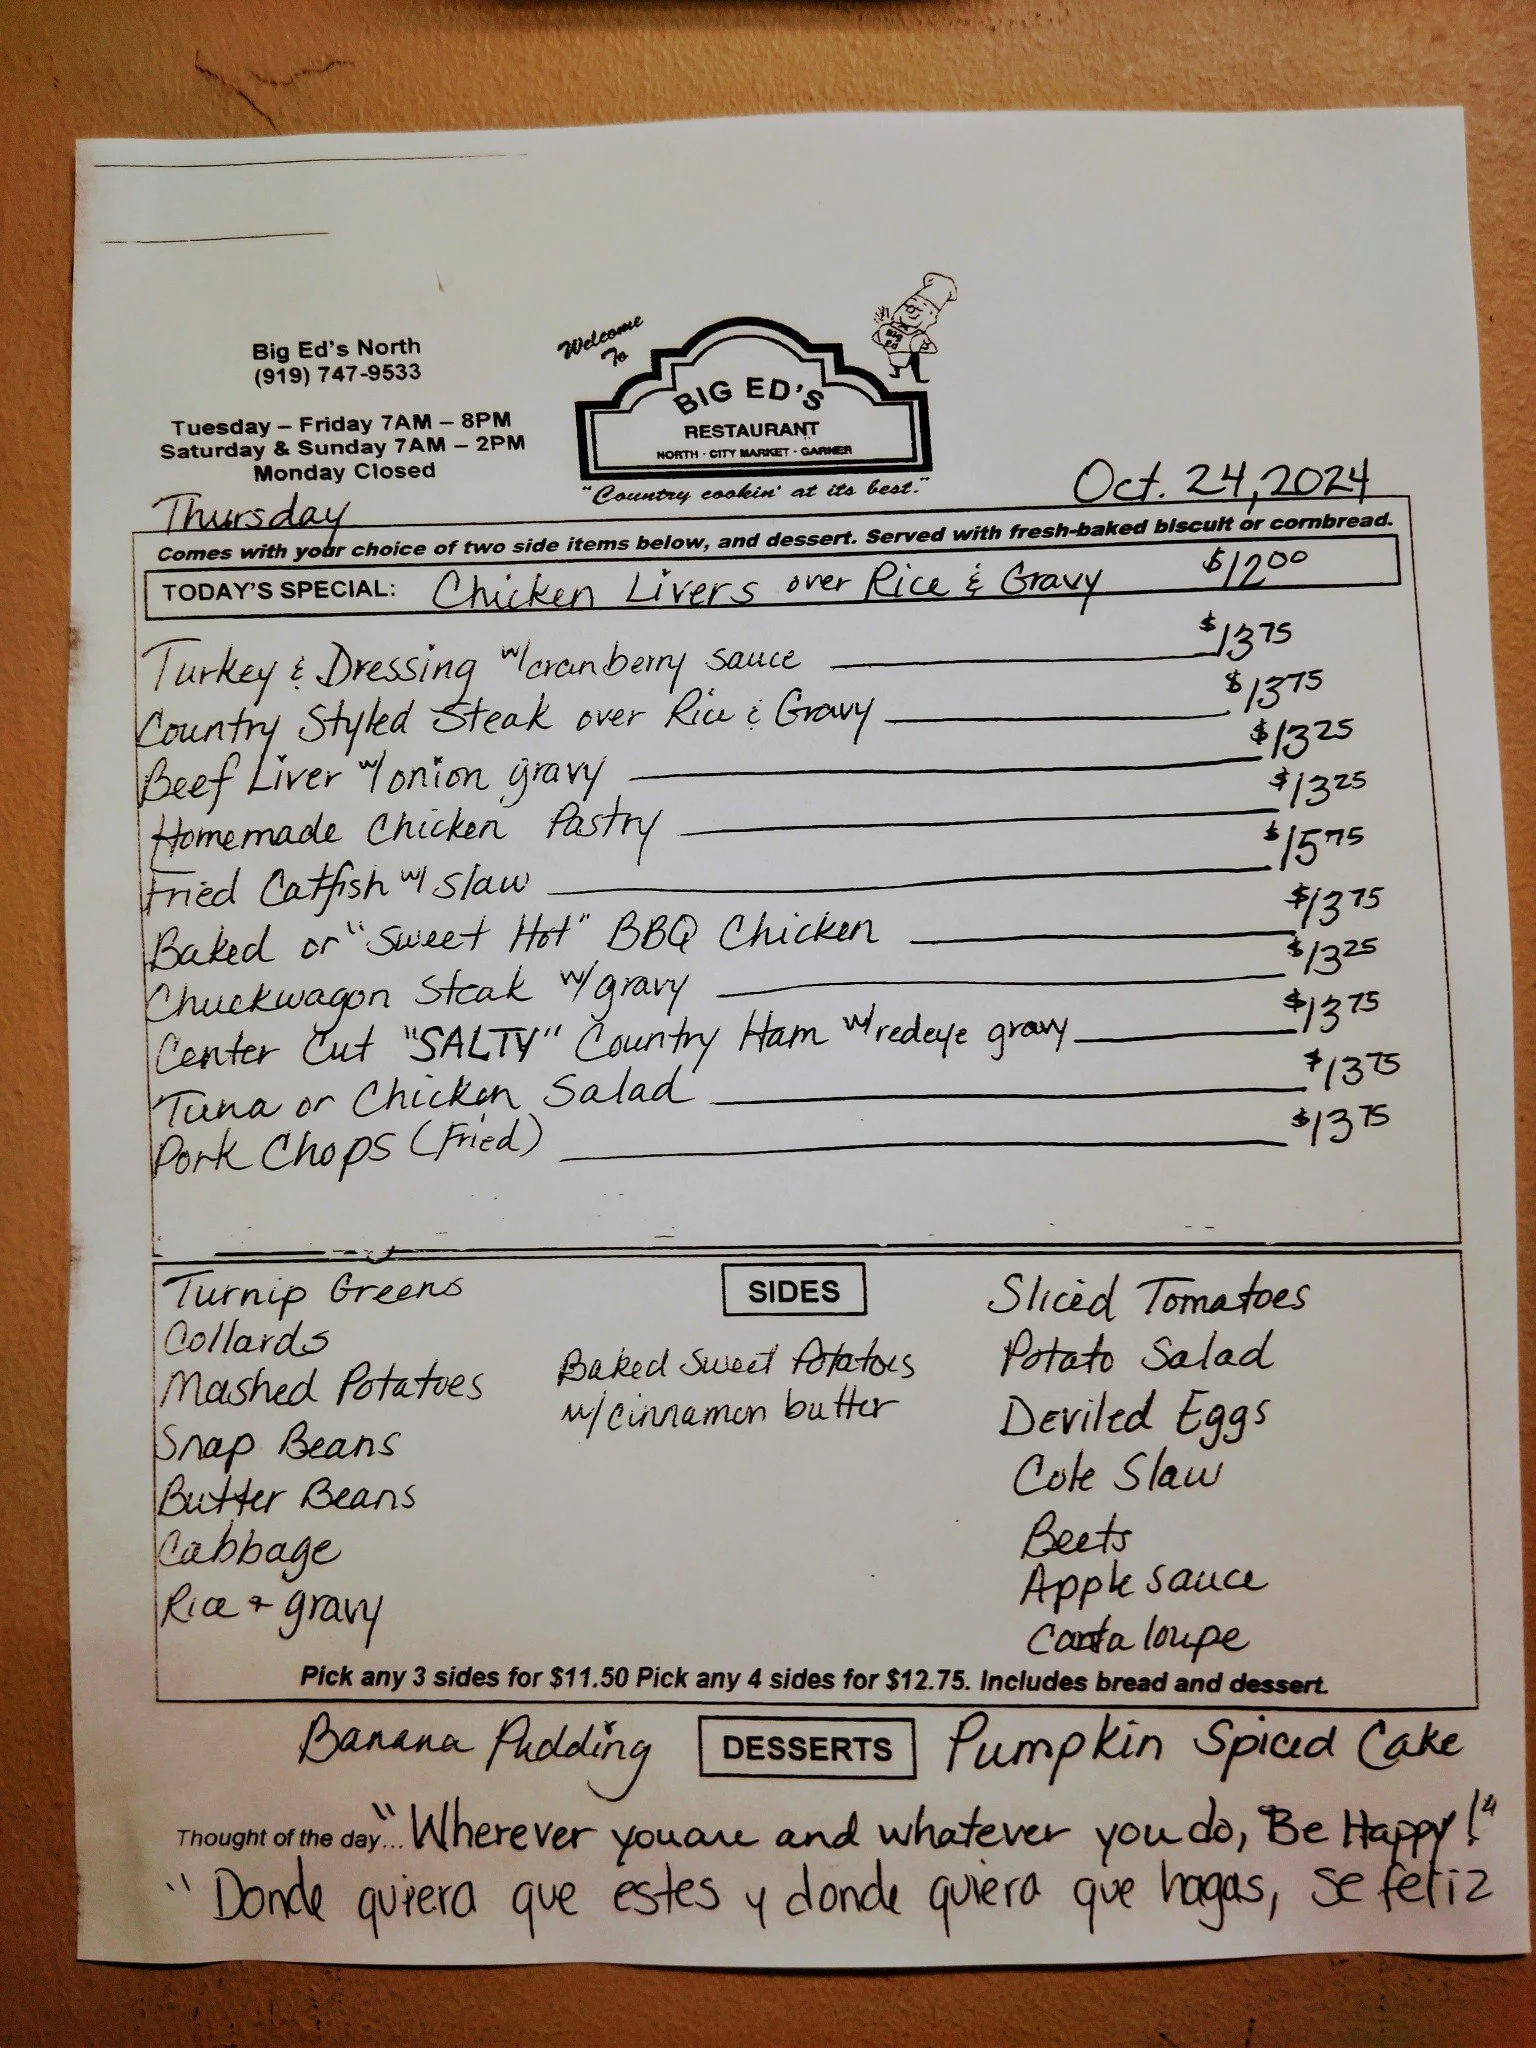 Big Ed's North
(919) 747-9533
Tuesday – Friday 7AM – 8PM
Saturday & Sunday 7AM – 2PM
Monday Closed
Welcome
To
Big Ed
BIG ED'S
RESTAURANT
NORTH · CITY MARKET · GARNER
"Country cookin' at its best."
Thursday
Oct. 24, 2024
Comes with your choice of two side items below, and dessert. Served with fresh-baked biscuit or cornbread.
TODAY'S SPECIAL: Chicken Livers over Rice & Gravy $12.00
Turkey & Dressing w/cranberry sauce $13.75
Country Styled Steak over Rice & Gravy $13.75
Beef Liver w/onion gravy $13.25
Homemade Chicken Pastry $13.25
Fried Catfish w/ slaw $15.75
Baked or "Sweet Hot" BBQ Chicken $13.75
Chuckwagon Steak w/gravy $13.25
Center Cut "SALTY" Country Ham w/redeye gravy $13.75
Tuna or Chicken Salad $13.75
Pork Chops (Fried) $13.75
SIDES
Turnip Greens
Collards
Mashed Potatoes
Snap Beans
Butter Beans
Cabbage
Rice & gravy
Baked Sweet Potatoes
w/cinnamon butter
Sliced Tomatoes
Potato Salad
Deviled Eggs
Cole Slaw
Beets
Apple sauce
Cantaloupe
Pick any 3 sides for $11.50 Pick any 4 sides for $12.75. Includes bread and dessert.
Banana Pudding DESSERTS Pumpkin Spiced Cake
Thought of the day... "Wherever you are and whatever you do, Be Happy!"
"Donde quiera que estes y donde quiera que hagas, se feliz